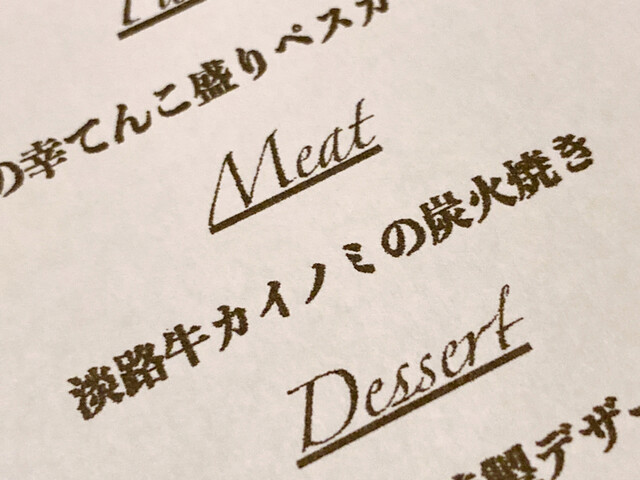 の幸てんこ盛りペスカ
Meat
淡路牛カイノミの炭火焼き
Dessert
製デザ